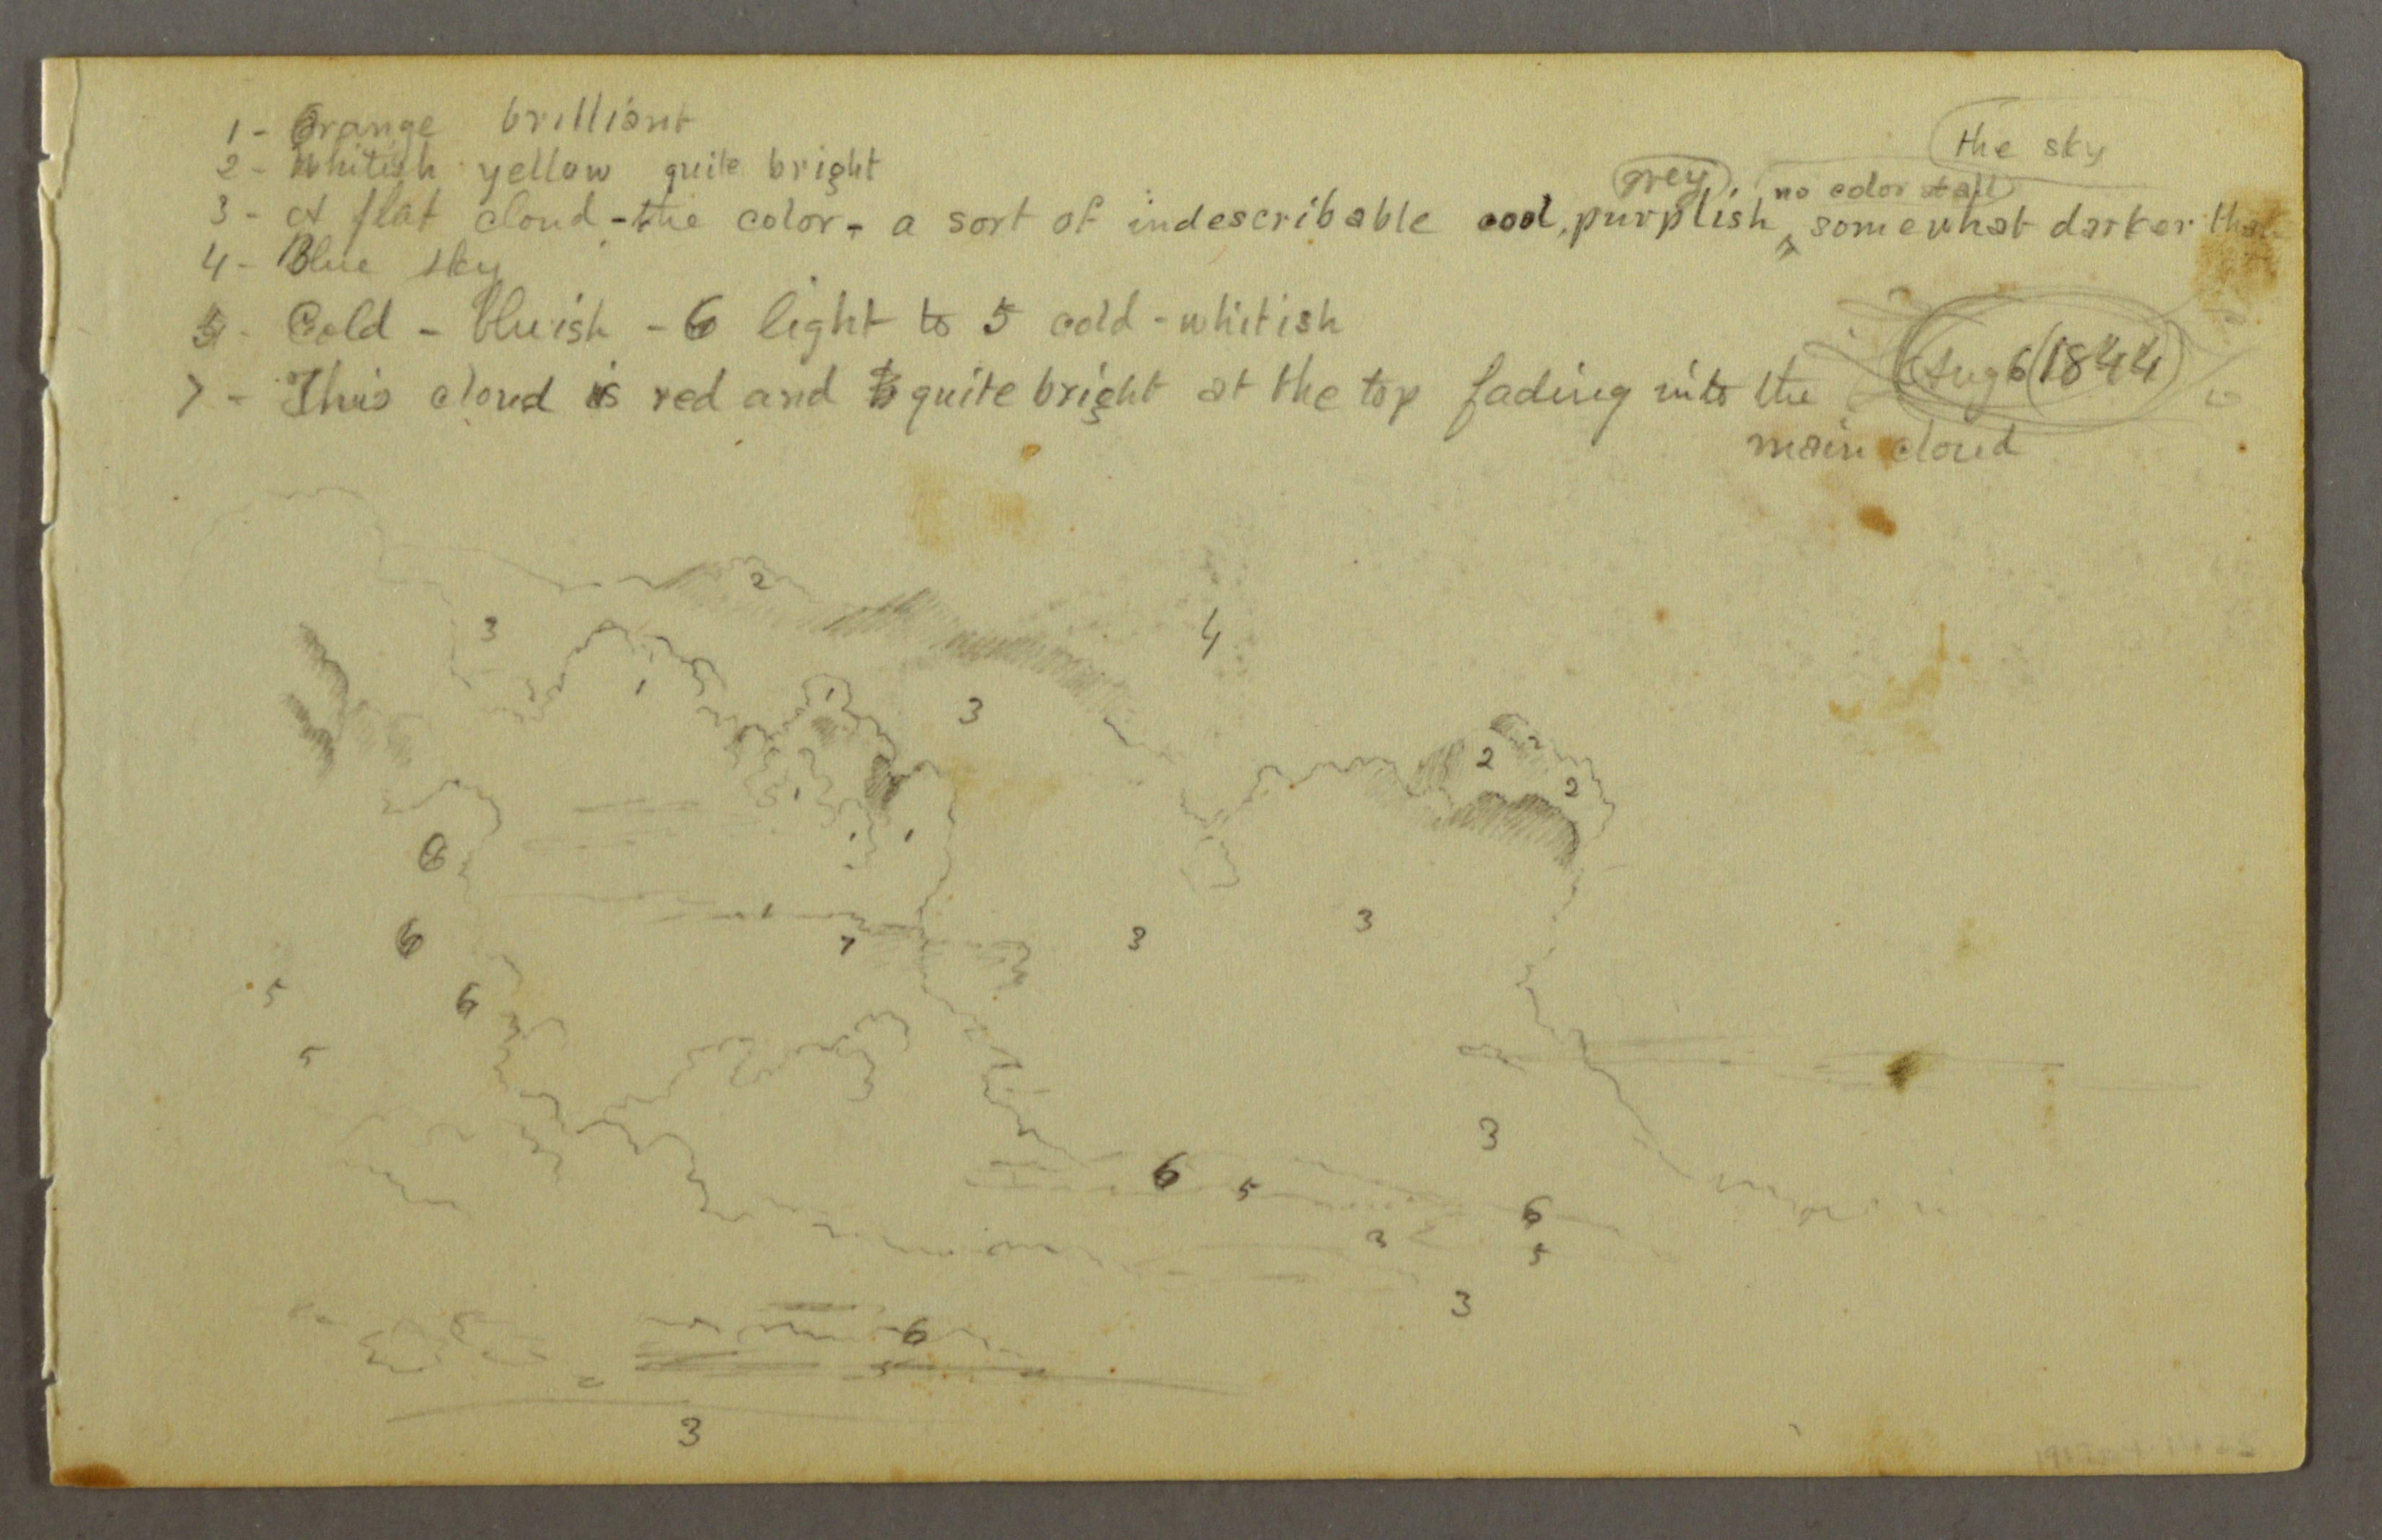 the sky
1 - Orange brilliant
2 - Whitish yellow quite bright
grey no color at all
3 - A flat cloud - the color - a sort of indescribable cool, purplish ^ somewhat darker than
4 - Blue sky
5 - Cold - bluish - 6 light to 5 cold - whitish
7 - This cloud is red and quite bright at the top fading into the
Aug 6 (1844)
main cloud
2
3
4
1
1
3
2
2
1
1
1
6
6
7
3
3
5
6
5
3
6
5
6
3
5
3
6
5
3